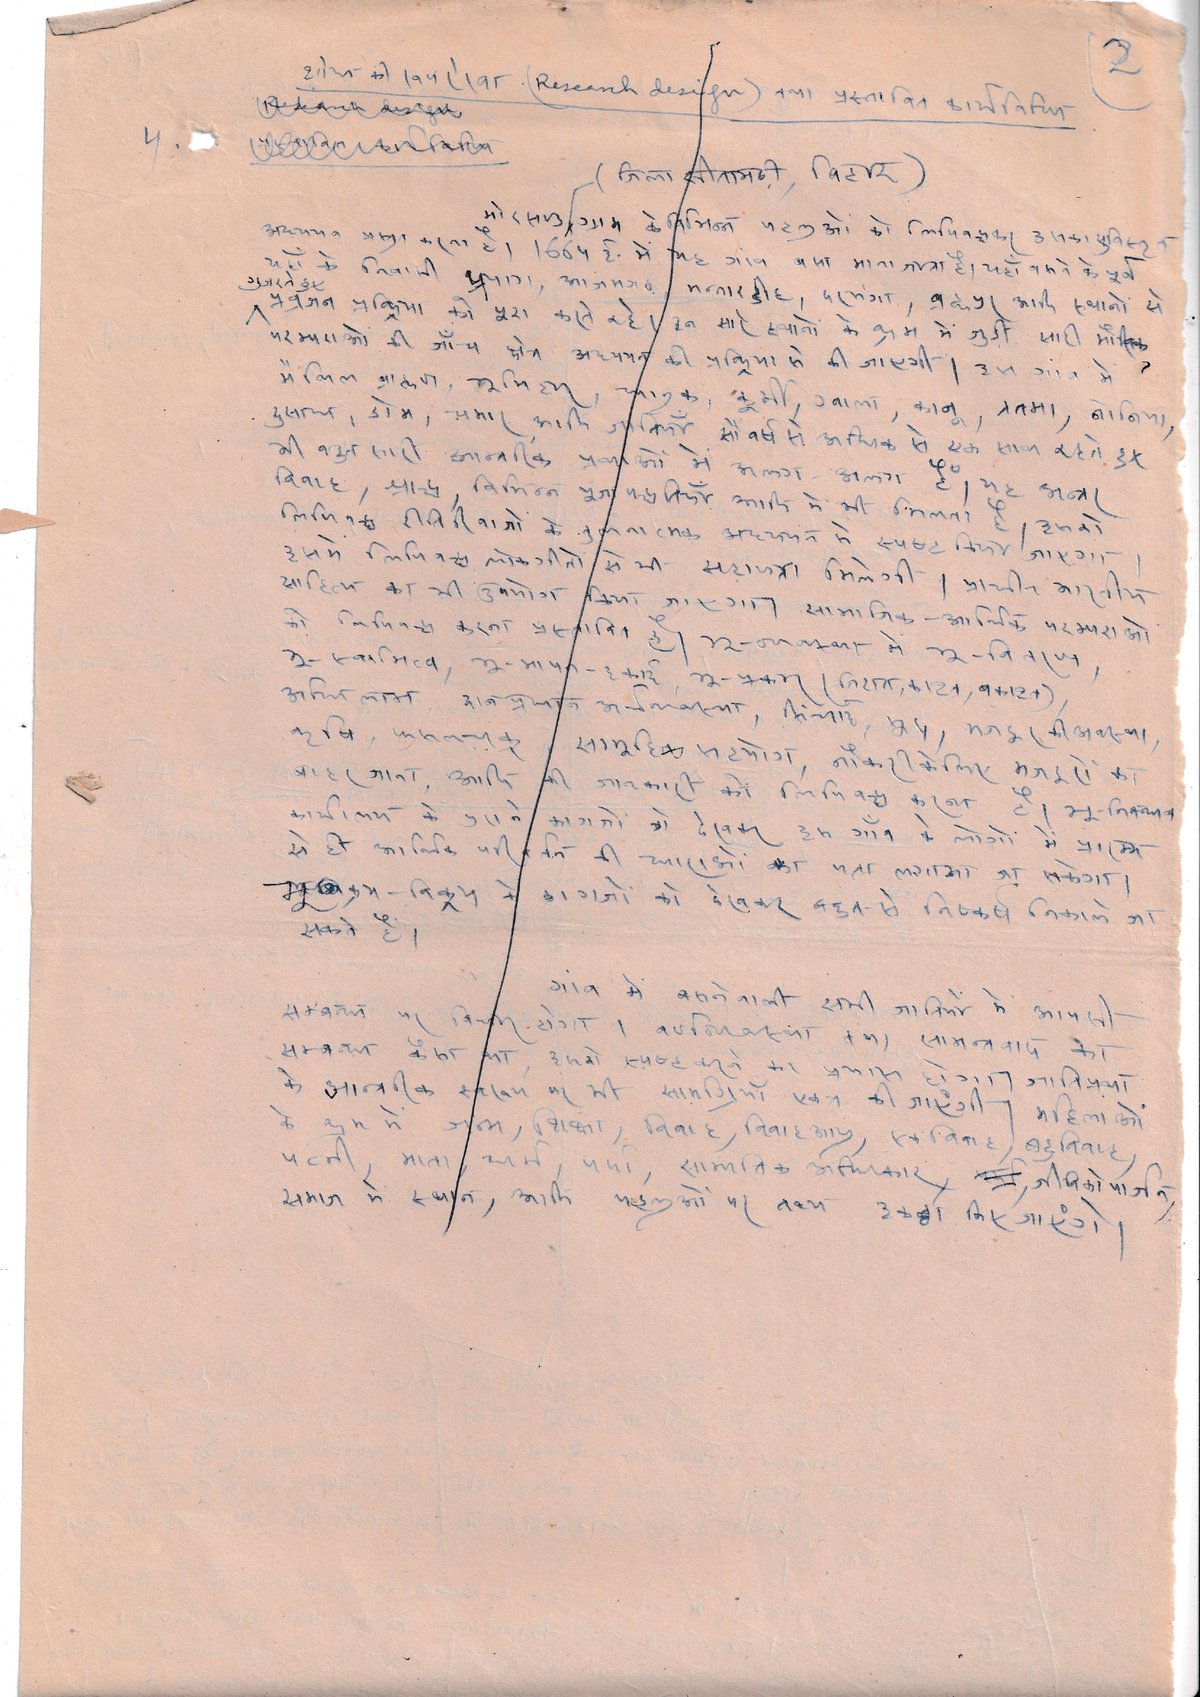 2
शोध की रूपरेखा (Research design) तथा प्रस्तावित कार्यविधि
Research design
4. प्रस्तावित कार्यविधि
(जिला सीतामढ़ी, बिहार)
मोरसण्ड ग्राम के विभिन्न पहलुओं को लिपिबद्धकर उसका सुविस्तृत
अध्ययन प्रस्तुत करना है। 1664 ई. में यह गांव बसा माना जाता है। यहाँ बसने के पूर्व
यहाँ के निवासी प्रयाग, आजमगढ़, मन्नारडीह, दरभंगा, ब्रह्मपुर आदि स्थानों से
गुजरते हुए
प्रव्रजन प्रक्रिया को पूरा करते रहे। इन सारे स्थानों के क्रम में जुड़ी सारी मौखिक
परम्पराओं की जाँच क्षेत्र अध्ययन की प्रक्रिया से की जाएगी। इस गांव में
मैथिल ब्राह्मण, भूमिहार, धानुक, कुर्मी, ग्वाला, कानू, ततमा, नोनिया,
दुसाध, डोम, चमार आदि जातियाँ सौ वर्ष से अधिक से एक साथ रहते हुए
भी बहुत सारी आन्तरिक प्रथाओं में अलग-अलग हैं। यह अन्तर
विवाह, श्राद्ध, विभिन्न पूजा पद्धतियों आदि में भी मिलता है। इसको
लिपिबद्ध रीतिरिवाजों के तुलनात्मक अध्ययन से स्पष्ट किया जाएगा।
इसमें लिपिबद्ध लोकगीतों से भी सहायता मिलेगी। प्राचीन भारतीय
साहित्य का भी उपयोग किया जाएगा। सामाजिक-आर्थिक परम्पराओं
को लिपिबद्ध करना प्रस्तावित है। भू-व्यवस्था में भू-वितरण,
भू-स्वामित्व, भू-मापन-इकाई, भू-प्रकार
अधिलाभ, अर्थव्यवस्था, सिंचाई, मजदूर की अवस्था,
कृषि, सामूहिक सहयोग, नौकरी के लिए मजदूरों का
बाहर जाना, आदि की जानकारी को लिपिबद्ध करना है। भू-निबन्धन
कार्यालय के पुराने कागजों को देखकर इस गाँव के लोगों में प्रारम्भ
से ही आर्थिक परिवर्तन की धाराओं का पता लगाया जा सकेगा।
क्रय-विक्रय के कागजों को देखकर बहुत से निष्कर्ष निकाले जा
सकते हैं।
गांव में बसनेवाली सभी जातियों में आपसी
सम्बन्ध पर विचार होगा। वर्णव्यवस्था तथा सामन्तवाद का
सम्बन्ध कैसा था, इसको स्पष्ट करने का प्रयास होगा। जातिप्रथा
के आन्तरिक स्वरूप पर भी सामग्रियाँ एकत्र की जाएँगी। महिलाओं
के क्रम में जन्म, शिक्षा, विवाह, विवाह आयु, एक विवाह, बहुविवाह,
पत्नी, माता, धर्म, पर्दा, सामाजिक अधिकार, जीविकोपार्जन,
समाज में स्थान, आदि पहलुओं पर तथ्य इकट्ठा किए जाएंगे।